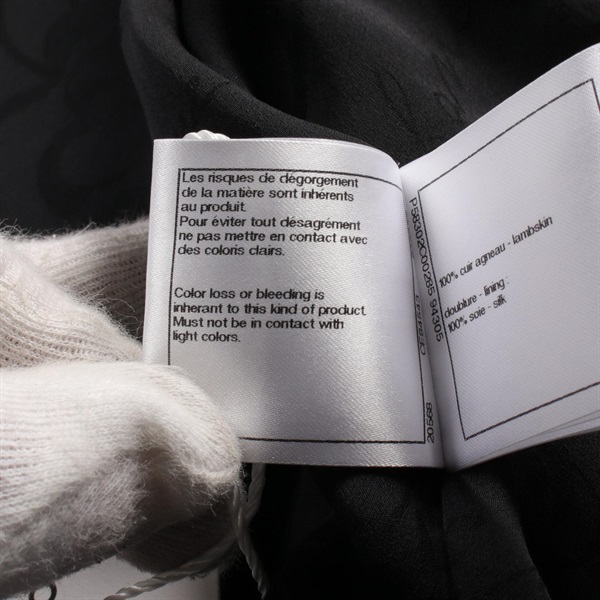 Les risques de dégorgement
de la matière sont inhérents
au produit.
Pour éviter tout désagrément
ne pas mettre en contact avec
des coloris clairs.
Color loss or bleeding is
inherant to this kind of product.
Must not be in contact with
light colors.
P58302C00285 94305
20568
100% cuir agneau - lambskin
doublure - lining :
100% soie - silk